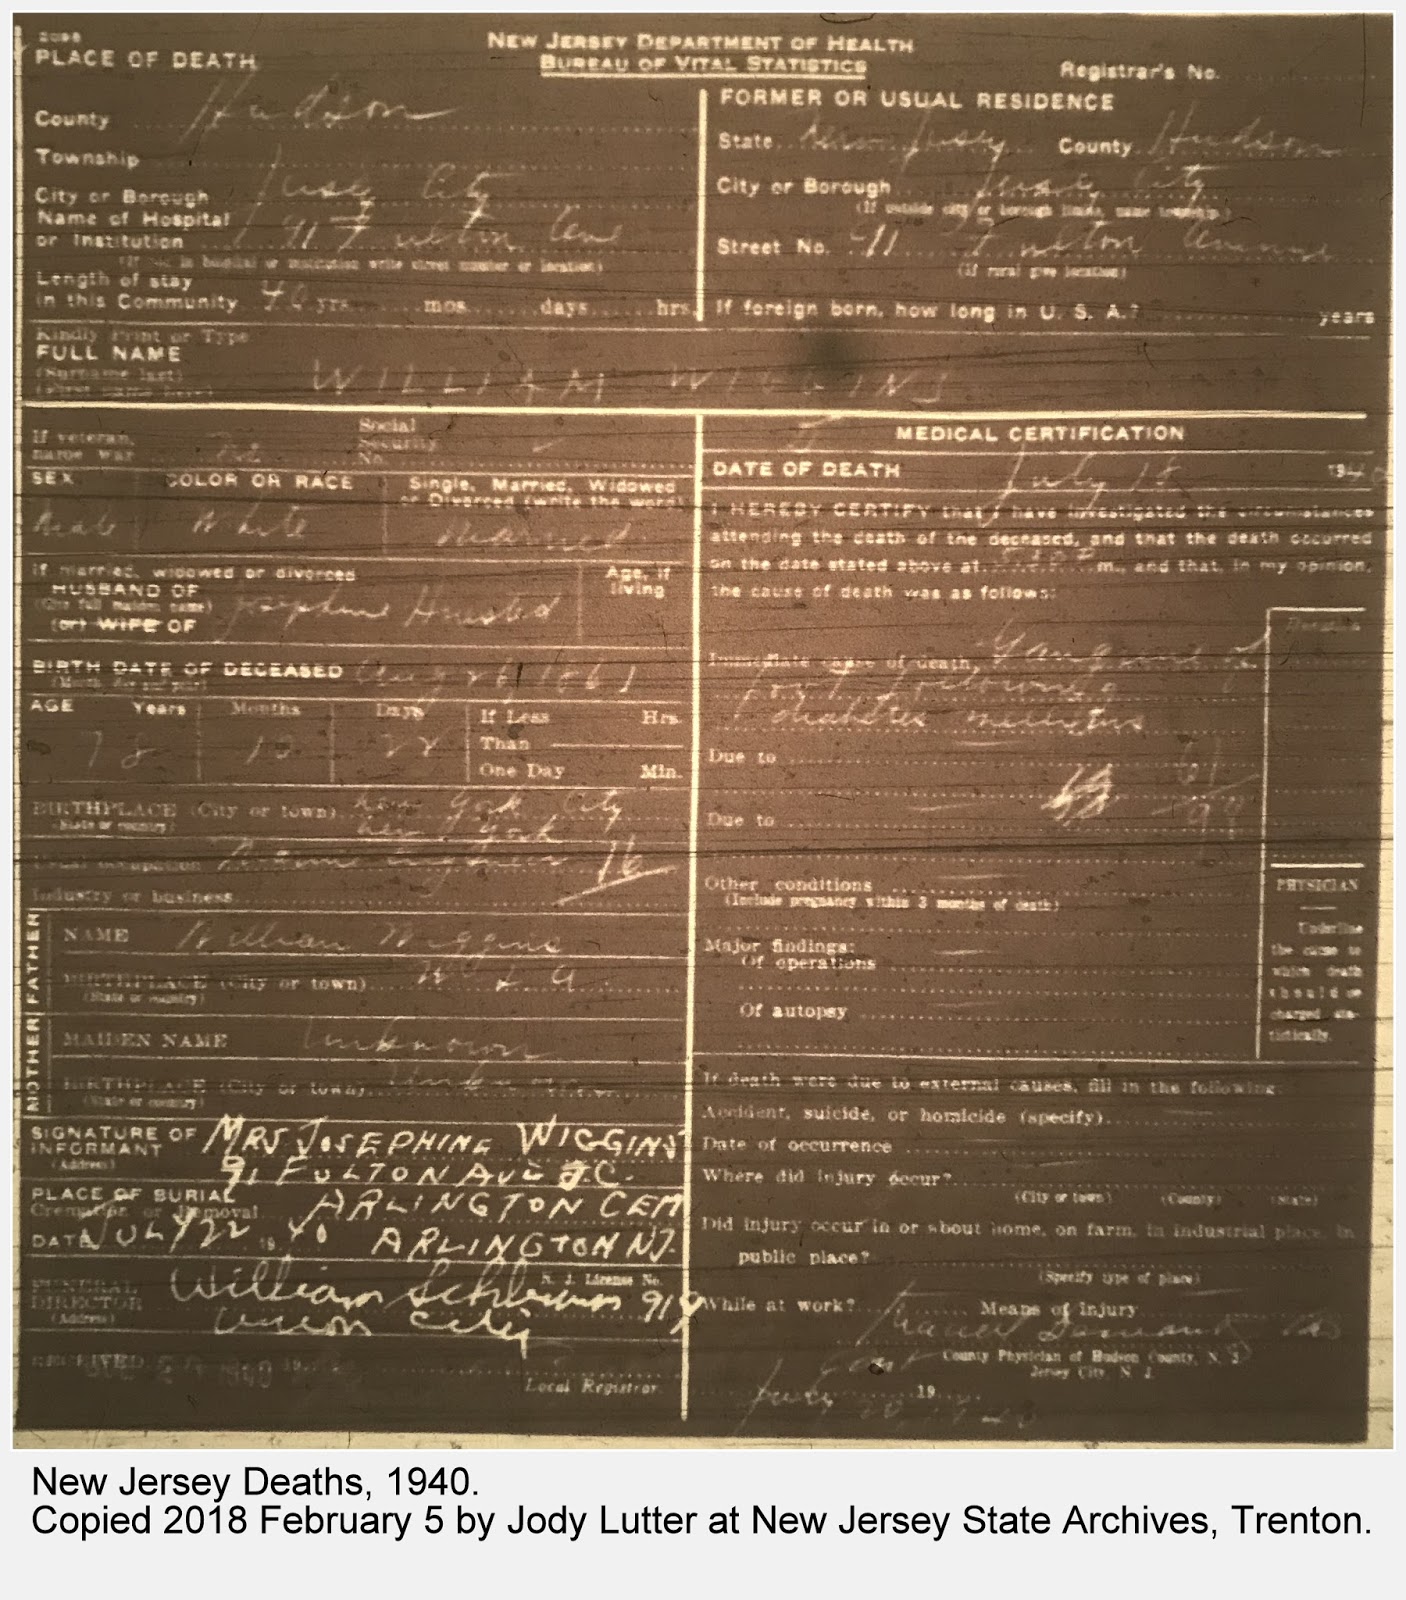 PLACE OF DEATH
NEW JERSEY DEPARTMENT OF HEALTH
BUREAU OF VITAL STATISTICS
Registrar's No.
County Hudson
Township
City or Borough Jersey City
Name of Hospital
or Institution 91 Fulton Ave
(If not in hospital or institution write street number or location)
Length of stay
in this Community 40 yrs. mos. days hrs.
FORMER OR USUAL RESIDENCE
State New Jersey County Hudson
City or Borough Jersey City
(If outside city or borough limits, name township.)
Street No. 91 Fulton Avenue
(If rural give location)
If foreign born, how long in U. S. A.? years
Kindly Print or Type
FULL NAME
(Surname last) WILLIAM WIGGINS
If veteran,
name war No
Social
Security
No. -
SEX COLOR OR RACE Single, Married, Widowed
or Divorced (write the word)
Male White Married
If married, widowed or divorced
HUSBAND OF
(Give full maiden name) Josephine Husted
(or) WIFE OF
Age, if
living
BIRTH DATE OF DECEASED Aug 1861
AGE Years Months Days If Less Hrs.
Than
One Day Min.
78
BIRTHPLACE (City or town) New York City
(State or country) New York
Usual occupation Engineer 76
Industry or business
FATHER
NAME William Wiggins
BIRTHPLACE (City or town) U S A
(State or country)
MOTHER
MAIDEN NAME Unknown
BIRTHPLACE (City or town) Unknown
(State or country)
SIGNATURE OF
INFORMANT MRS JOSEPHINE WIGGINS
(Address) 91 FULTON AVE J.C.
PLACE OF BURIAL
Cremation or Removal ARLINGTON CEM
DATE JULY 22 1940 ARLINGTON NJ.
FUNERAL
DIRECTOR William
N. J. License No.
(Address) Union City
RECEIVED 1940
Local Registrar.
MEDICAL CERTIFICATION
DATE OF DEATH July 18 1940
I HEREBY CERTIFY that I have investigated the circumstances
attending the death of the deceased, and that the death occurred
on the date stated above at P m., and that, in my opinion,
the cause of death was as follows:
Duration
Immediate cause of death, Gangrene of
foot following
diabetes mellitus
Due to 61
Due to
Other conditions
(Include pregnancy within 3 months of death)
Major findings:
Of operations
Of autopsy
PHYSICIAN
Underline
the cause to
which death
should be
charged sta-
tistically.
If death were due to external causes, fill in the following:
Accident, suicide, or homicide (specify)
Date of occurrence
Where did injury occur?
(City or town) (County) (State)
Did injury occur in or about home, on farm, in industrial place, in
public place?
(Specify type of place)
While at work? Means of injury
County Physician of Hudson County, N. J.
Jersey City, N. J.
July 20 1940
New Jersey Deaths, 1940.
Copied 2018 February 5 by Jody Lutter at New Jersey State Archives, Trenton.